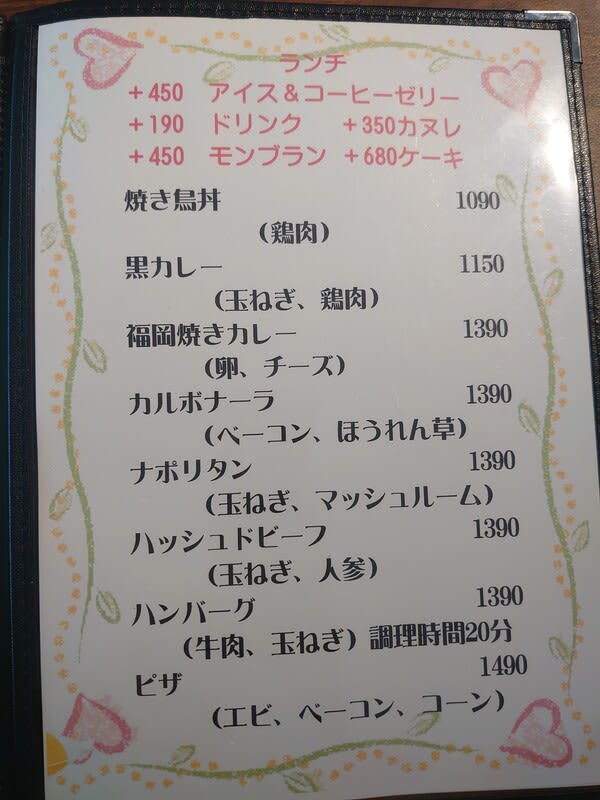 ランチ
+450 アイス&コーヒーゼリー
+190 ドリンク +350カヌレ
+450 モンブラン +680ケーキ
焼き鳥丼 1090
(鶏肉)
黒カレー 1150
(玉ねぎ、鶏肉)
福岡焼きカレー 1390
(卵、チーズ)
カルボナーラ 1390
(ベーコン、ほうれん草)
ナポリタン 1390
(玉ねぎ、マッシュルーム)
ハッシュドビーフ 1390
(玉ねぎ、人参)
ハンバーグ 1390
(牛肉、玉ねぎ) 調理時間20分
ピザ 1490
(エビ、ベーコン、コーン)